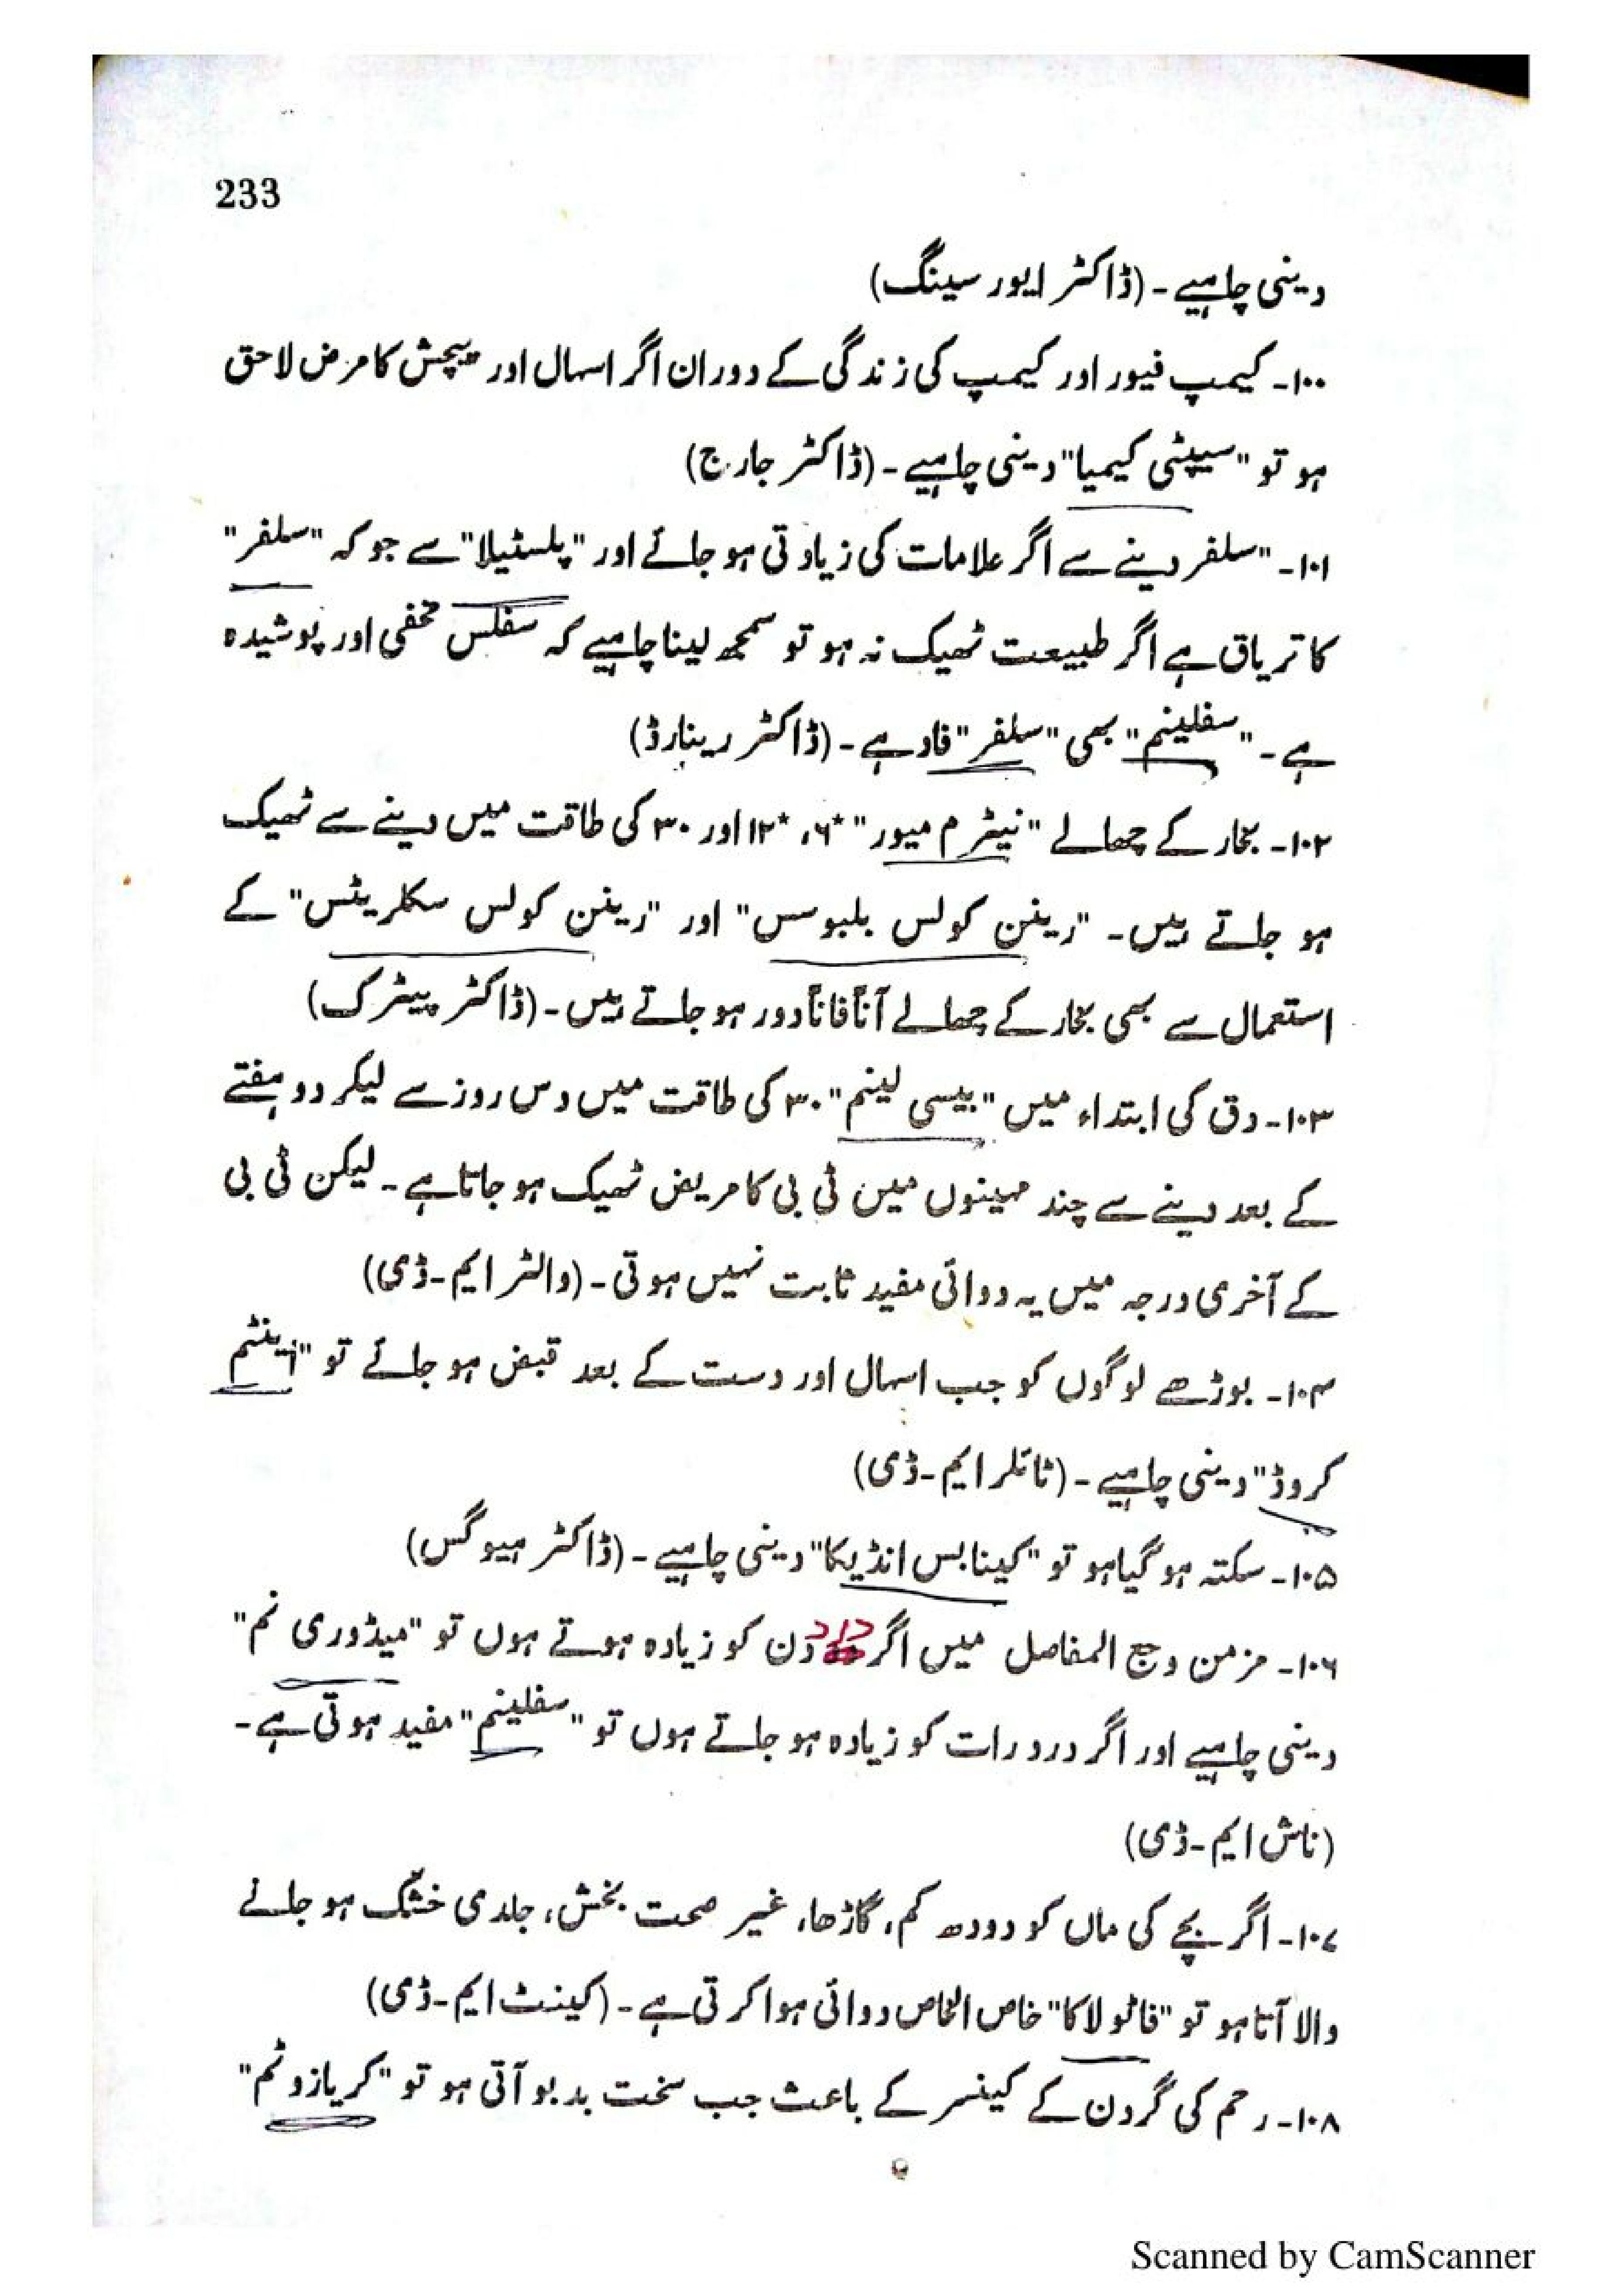 233
دینی چاہیے ۔ (ڈاکٹر ایور سینگ)
۱۰۰۔ کیمپ فیور اور کیمپ کی زندگی کے دوران اگر اسہال اور پیچش کا مرض لاحق
ہو تو "سیپٹی کیمیا" دینی چاہیے ۔ (ڈاکٹر جارج)
۱۰۱۔ "سلفر دینے سے اگر علامات کی زیادتی ہو جائے اور "پلسٹیلا" سے جو کہ "سلفر"
کا تریاق ہے اگر طبیعت ٹھیک نہ ہو تو سمجھ لینا چاہیے کہ سفلس مخفی اور پوشیدہ
ہے ۔ "سفلینم" بھی "سلفر" فاد ہے ۔ (ڈاکٹر رینارڈ)
۱۰۲۔ بخار کے چھالے "نیٹرم میور" *۶، *۱۲ اور ۳۰ کی طاقت میں دینے سے ٹھیک
ہو جاتے ہیں۔ "رینن کولس بلبوسس" اور "رینن کولس سکلریٹس" کے
استعمال سے بھی بخار کے چھالے آناً فاناً دور ہو جاتے ہیں ۔ (ڈاکٹر پیٹرک)
۱۰۳۔ دق کی ابتداء میں "بیسی لینم" ۳۰ کی طاقت میں دس روز سے لیکر دو ہفتے
کے بعد دینے سے چند مہینوں میں ٹی بی کا مریض ٹھیک ہو جاتا ہے ۔ لیکن ٹی بی
کے آخری درجہ میں یہ دوائی مفید ثابت نہیں ہوتی ۔ (والٹر ایم۔ڈی)
۱۰۴۔ بوڑھے لوگوں کو جب اسہال اور دست کے بعد قبض ہو جائے تو "اینٹم
کروڈ" دینی چاہیے ۔ (ٹائلر ایم۔ڈی)
۱۰۵۔ سکتہ ہو گیا ہو تو "کینابس انڈیکا" دینی چاہیے ۔ (ڈاکٹر ہیوگس)
۱۰۶۔ مزمن وجع المفاصل میں اگر درد دن کو زیادہ ہوتے ہوں تو "میڈوری نم"
دینی چاہیے اور اگر درد رات کو زیادہ ہو جاتے ہوں تو "سفلینم" مفید ہوتی ہے ۔
(ناش ایم۔ڈی)
۱۰۷۔ اگر بچے کی ماں کو دودھ کم، گاڑھا، غیر صحت بخش، جلدی خشک ہو جانے
والا آتا ہو تو "فائٹولاکا" خاص الخاص دوائی ہوا کرتی ہے ۔ (کینٹ ایم۔ڈی)
۱۰۸۔ رحم کی گردن کے کینسر کے باعث جب سخت بدبو آتی ہو تو "کریازوٹم"
Scanned by CamScanner